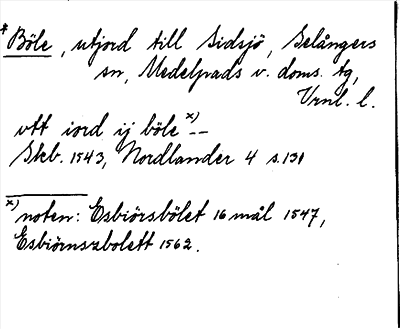 * Böle, utjord till Sidsjö, Selångers
sn, Medelpads v. doms. tg,
Vrnl. l.
vtt iord ij böle x) --
Skb. 1543, Nordlander 4 s. 131
x) noten: Esbiörsbölet 16 mål 1547,
Esbiörnszbolett 1562.